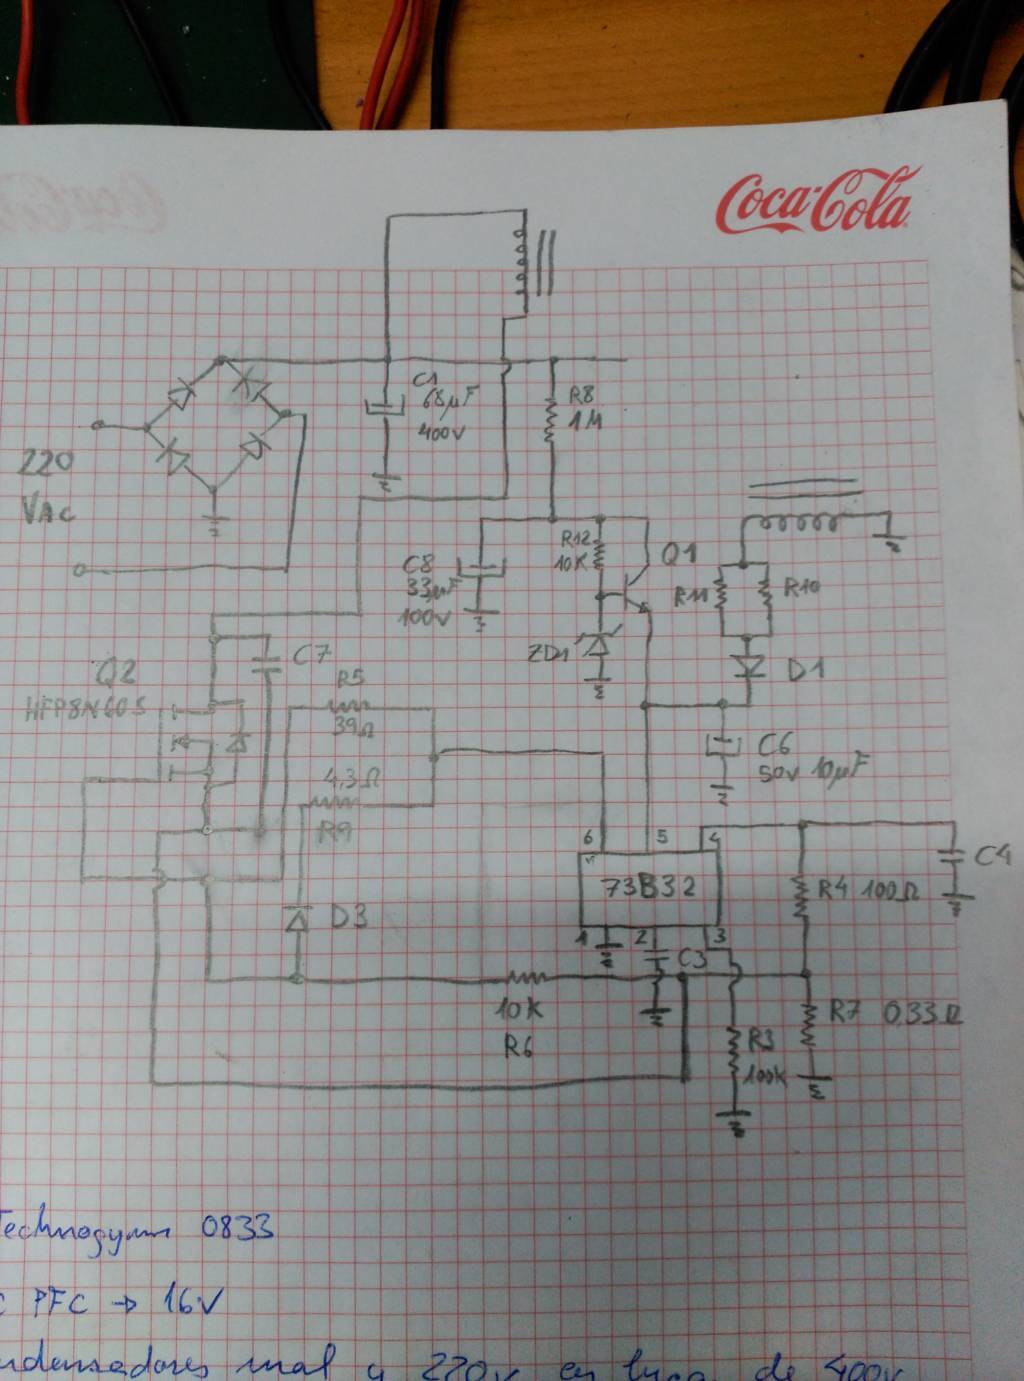 Coca-Cola
C1
68µF
400V
R8
1M
220
VAC
C8
33µF
100V
R12
10K
Q1
R11
R10
ZD1
D1
Q2
HFP8N60S
C7
R5
39Ω
4.3Ω
R9
C6
50V 10µF
6
5
4
73B32
1
2
3
C3
C4
R4 100Ω
D3
10K
R6
R7 0.33Ω
R3
100K
Technogym 0833
PFC → 16V
mal a 220V en de 400V